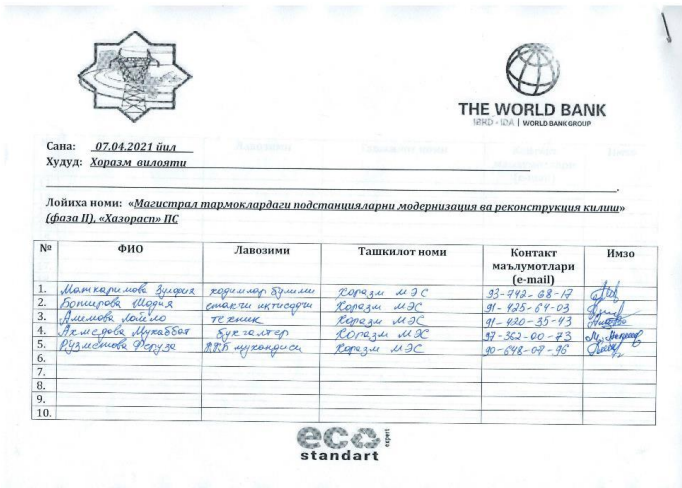 THE WORLD BANK
IBRD - IDA | WORLD BANK GROUP
Сана: 07.04.2021 йил
Худуд: Хоразм вилояти
Лойиха номи: «Магистрал тармоклардаги подстанцияларни модернизация ва реконструкция килиш»
(фаза II), «Хазорасп» ПС
№ ФИО Лавозими Ташкилот номи Контакт маълумотлари (e-mail) Имзо
1. Маткаримова Зулфия ходимлар бўлими Хоразм МЭС 93-742-68-17
2.Ботирова Шодия етакчи иқтисодчи Хоразм МЭС 91-425-64-03
3. Алимова Лайло техник Хоразм МЭС 91-420-35-43
4. Ахмедова Мухаббат бухгалтер Хоразм МЭС 97-362-00-73
5. Рузметова Феруза мухандиси Хоразм МЭС 90-648-07-96
6.
7.
8.
9.
10.
eco
expert
standart